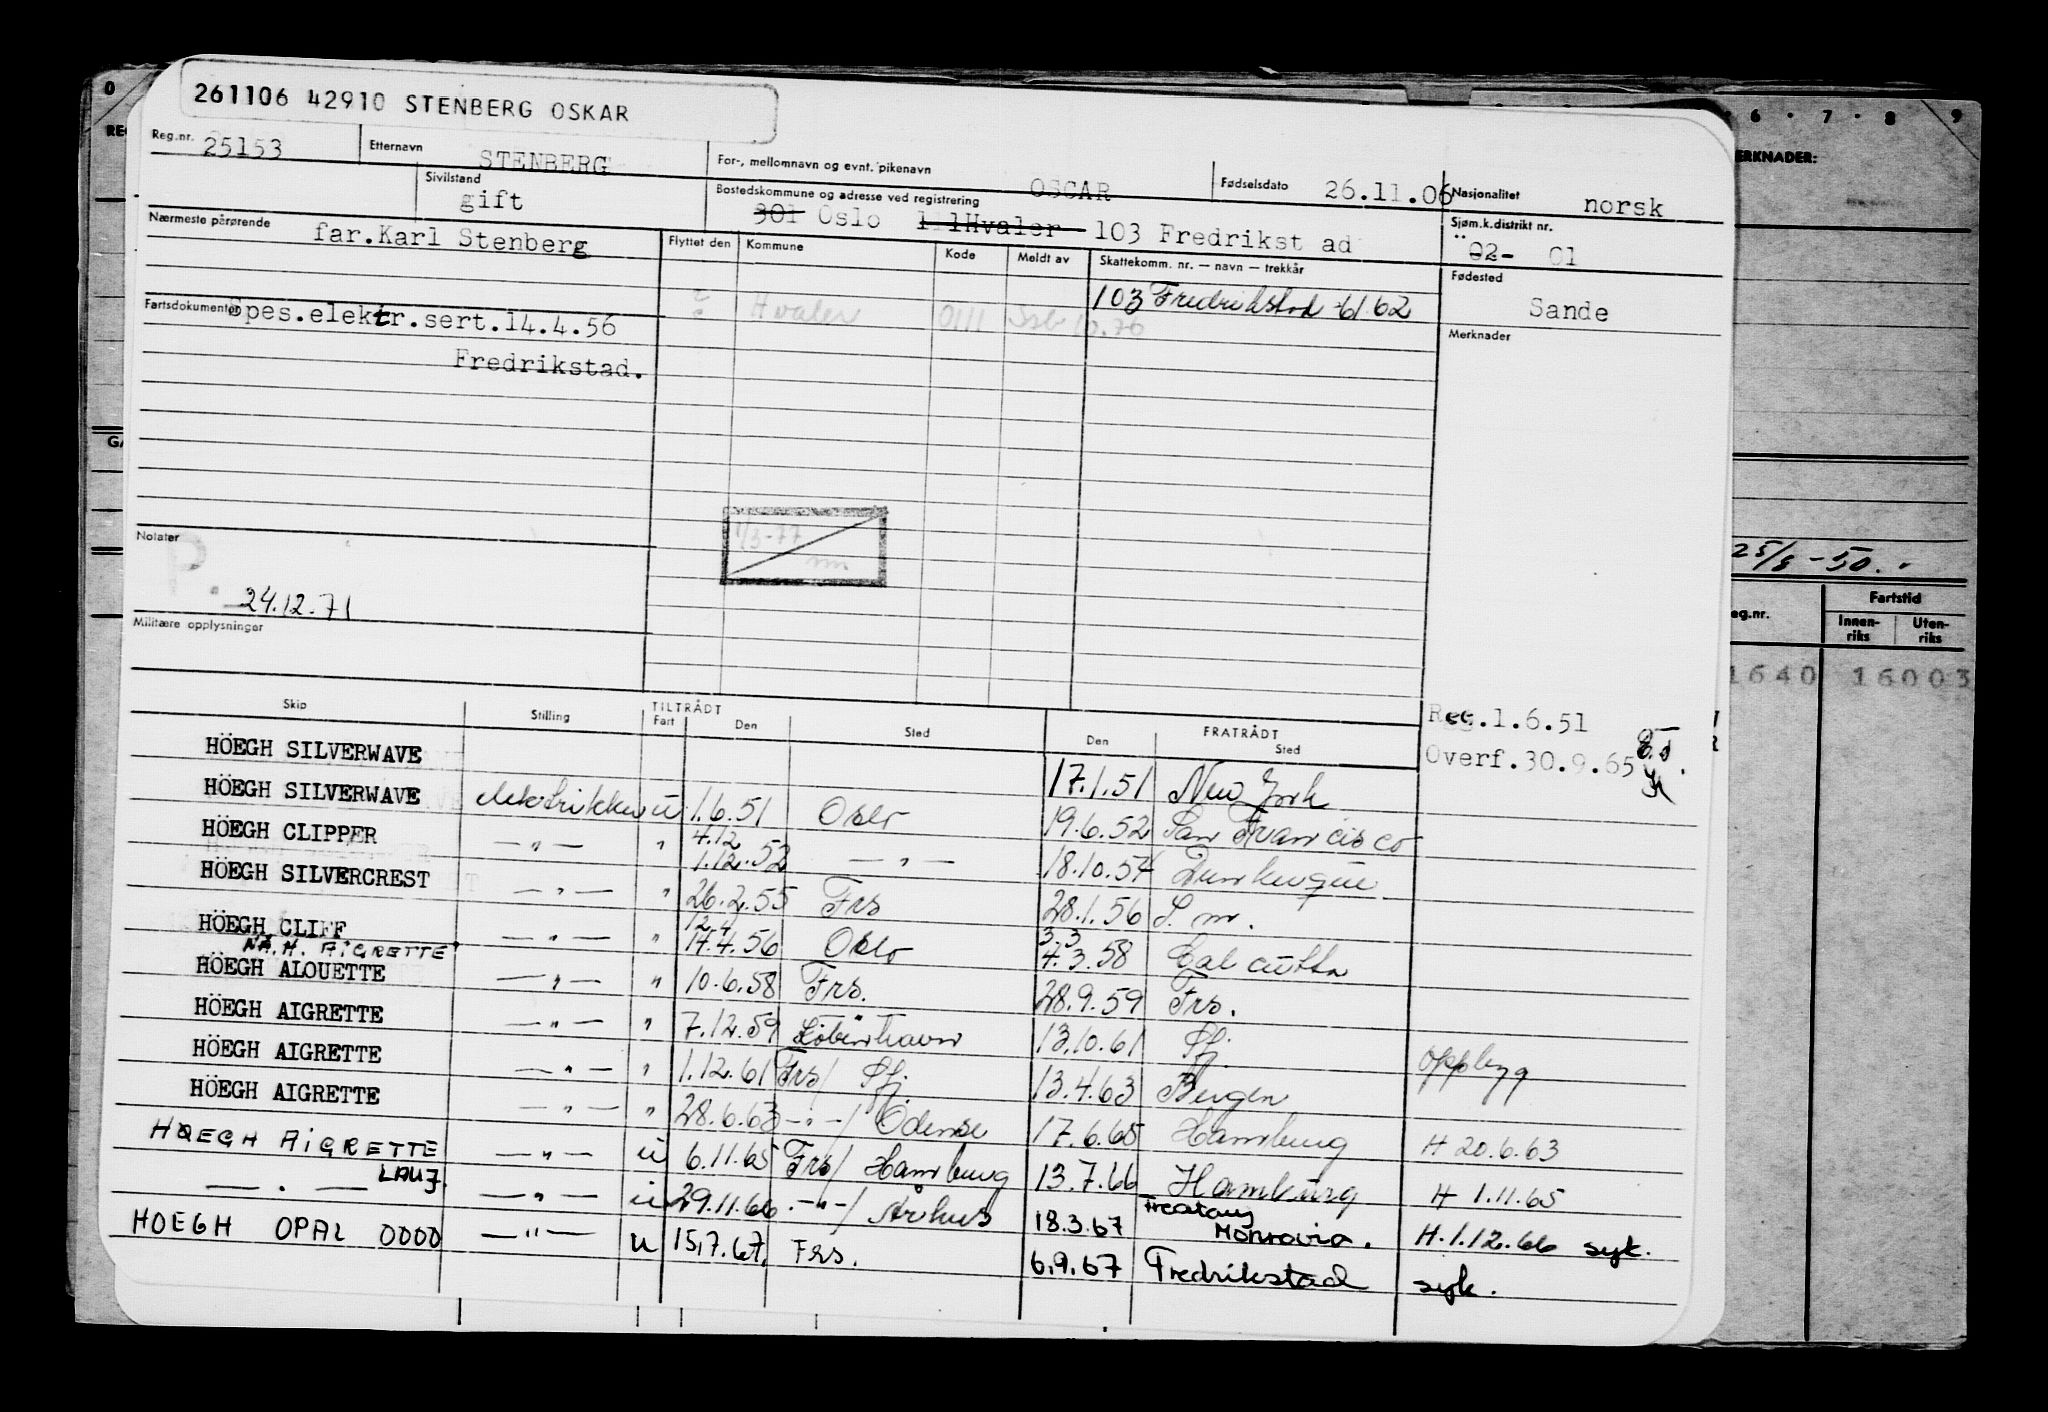 261106 42910 STENBERG OSKAR
Reg.nr. 25153 Etternavn STENBERG For-, mellomnavn og evnt. pikenavn OSCAR Fødselsdato 26.11.06 Nasjonalitet norsk
Sivilstand gift Bostedskommune og adresse ved registrering 301 Oslo 111Hvaler 103 Fredrikstad Sjøm.k.distrikt nr. 02- 01
Nærmeste pårørende far.Karl Stenberg Flyttet den Kommune Kode Meldt av Skattekomm. nr. — navn — trekkår Fødested Sande
Hvaler 0111 10.76 103 Fredrikstad 61 62
Fartsdokumenter Spes.elektr.sert.14.4.56
Fredrikstad.
Merknader
1/3-77
Notater P. 24.12.71
Militære opplysninger
Reg.1.6.51
Overf.30.9.65
Skip Stilling TILTRÅDT Fart Den Sted FRATRÅDT Den Sted
HÖEGH SILVERWAVE 17.1.51 New York
HÖEGH SILVERWAVE elektrikker u 1.6.51 Oslo 19.6.52 San Francisco
HÖEGH CLIPPER — " — " 4.12 1.12.52 — " — 18.10.54 Dunkerque
HÖEGH SILVERCREST — " — " 26.2.55 Frs 28.1.56 S.m.
HÖEGH CLIFF — " — " 12.4 14.4.56 Oslo 3.3 4.3.58 Calcutta
NÅ H. AIGRETTE
HÖEGH ALOUETTE — " — " 10.6.58 Frs. 28.9.59 Frs.
HÖEGH AIGRETTE — " — " 7.12.59 København 13.10.61 Sfj
HÖEGH AIGRETTE — " — " 1.12.61 Frs/ Sfj. 13.4.63 Bergen oppbygg
HÖEGH AIGRETTE — " — " 28.6.63 — " —/ Odense 17.6.65 Hamburg H 20.6.63
HØEGH AIGRETTE — " — u 6.11.65 Frs/ Hamburg 13.7.66 Hamburg H 1.11.65
— " — LAUJ. — " — u 29.11.66 — " —/ Århus 18.3.67 Monrovia. H.1.12.66 syk.
HOEGH OPAL 0000 — " — u 15.7.67. Frs. 6.9.67 Fredrikstad syk.
0
6 . 7 . 8 9
ERKNADER:
25/8 -50.
eg.nr. Fartstid
Innen-riks Uten-riks
1640 16003